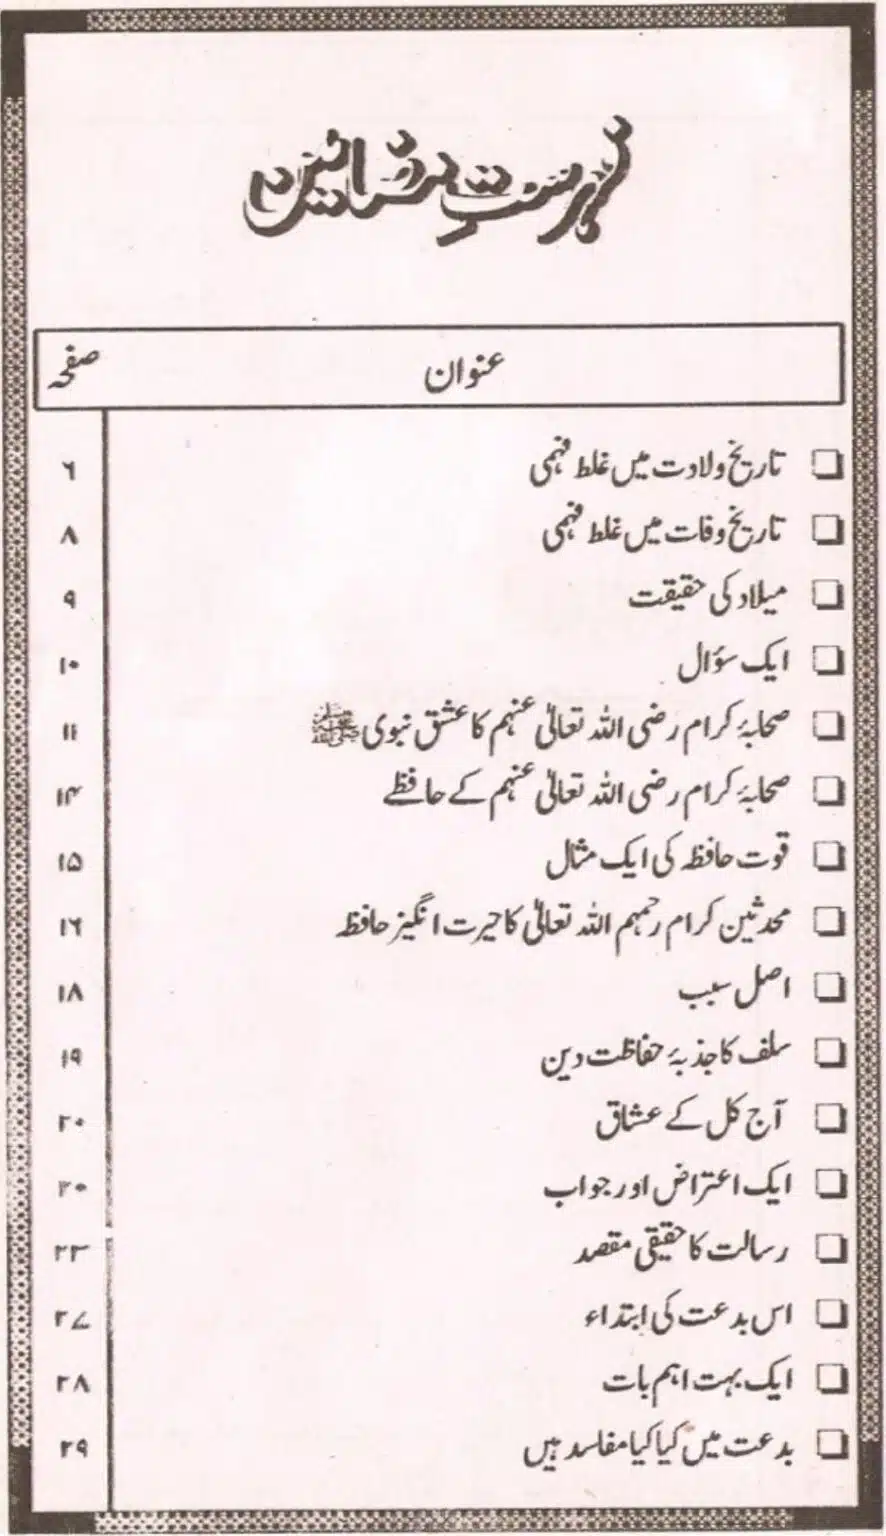 فہرستِ مضامین
عنوان صفحہ
❏ تاریخ ولادت میں غلط فہمی ۶
❏ تاریخ وفات میں غلط فہمی ۸
❏ میلاد کی حقیقت ۹
❏ ایک سؤال ۱۰
❏ صحابۂ کرام رضی اللہ تعالیٰ عنہم کا عشق نبوی ﷺ ۱۱
❏ صحابۂ کرام رضی اللہ تعالیٰ عنہم کے حافظے ۱۴
❏ قوت حافظہ کی ایک مثال ۱۵
❏ محدثین کرام رحمہم اللہ تعالیٰ کا حیرت انگیز حافظہ ۱۶
❏ اصل سبب ۱۸
❏ سلف کا جذبۂ حفاظت دین ۱۹
❏ آج کل کے عشاق ۲۰
❏ ایک اعتراض اور جواب ۲۰
❏ رسالت کا حقیقی مقصد ۲۳
❏ اس بدعت کی ابتداء ۲۷
❏ ایک بہت اہم بات ۲۸
❏ بدعت میں کیا کیا مفاسد ہیں ۲۹